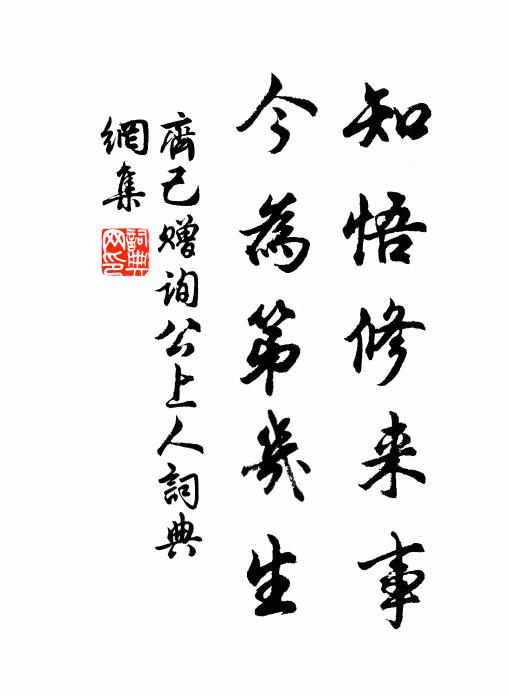 知悟修来事
今為第幾生
齊己赠詢公上人詞典
網集
詞典
网印